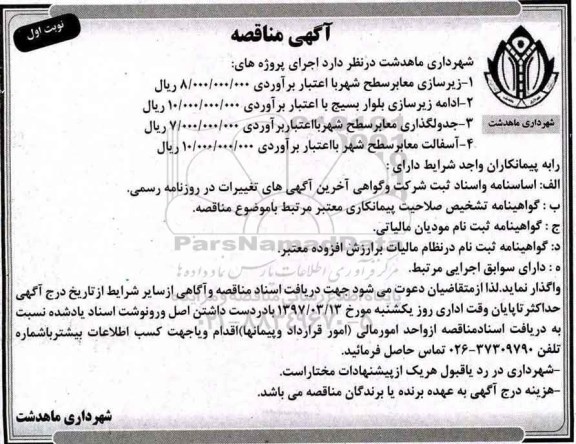 آگهی مناقصه
نوبت اول
شهرداری ماهدشت
شهرداری ماهدشت درنظر دارد اجرای پروژه های:
۱-زیرسازی معابرسطح شهربا اعتبار برآوردی ۸/۰۰۰/۰۰۰/۰۰۰ ریال
۲-ادامه زیرسازی بلوار بسیج با اعتبار برآوردی ۱۰/۰۰۰/۰۰۰/۰۰۰ ریال
۳-جدولگذاری معابرسطح شهربااعتباربرآوردی ۷/۰۰۰/۰۰۰/۰۰۰ ریال
۴-آسفالت معابرسطح شهر بااعتبار برآوردی ۱۰/۰۰۰/۰۰۰/۰۰۰ ریال
رابه پیمانکاران واجد شرایط دارای :
الف: اساسنامه واسناد ثبت شرکت وگواهی آخرین آگهی های تغییرات در روزنامه رسمی.
ب : گواهینامه تشخیص صلاحیت پیمانکاری معتبر مرتبط باموضوع مناقصه.
ج : گواهینامه ثبت نام مودیان مالیاتی.
د: گواهینامه ثبت نام درنظام مالیات برارزش افزوده معتبر.
ه : دارای سوابق اجرایی مرتبط.
واگذار نماید.لذا ازمتقاضیان دعوت می شود جهت دریافت اسناد مناقصه وآگاهی ازسایر شرایط از تاریخ درج آگهی
حداکثر تاپایان وقت اداری روز یکشنبه مورخ ۱۳۹۷/۰۳/۱۳ بادردست داشتن اصل ورونوشت اسناد یادشده نسبت
به دریافت اسنادمناقصه ازواحد امورمالی (امور قرارداد وپیمانها)اقدام ویاجهت کسب اطلاعات بیشترباشماره
تلفن ۳۷۳۰۹۷۹۰-۰۲۶ تماس حاصل فرمائید.
-شهرداری در رد یاقبول هریک ازپیشنهادات مختاراست.
-هزینه درج آگهی به عهده برنده یا برندگان مناقصه می باشد.
شهرداری ماهدشت
ParsNamadData